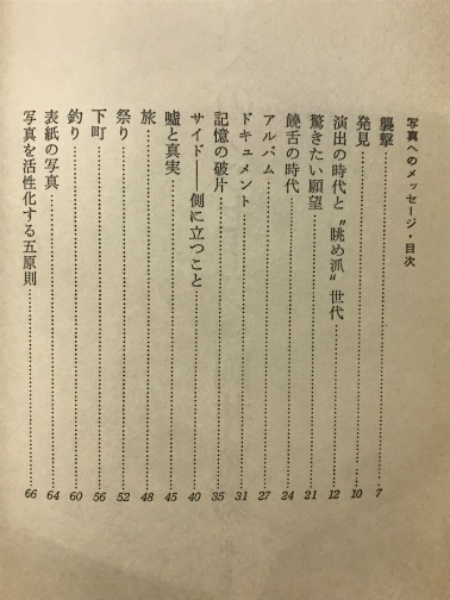 写真へのメッセージ・目次
襲撃 7
発見 10
演出の時代と〝眺め派〟世代 12
驚きたい願望 21
饒舌の時代 24
アルバム 27
ドキュメント 31
記憶の破片 35
サイド——側に立つこと 40
嘘と真実 45
旅 48
祭り 52
下町 56
釣り 60
表紙の写真 64
写真を活性化する五原則 66